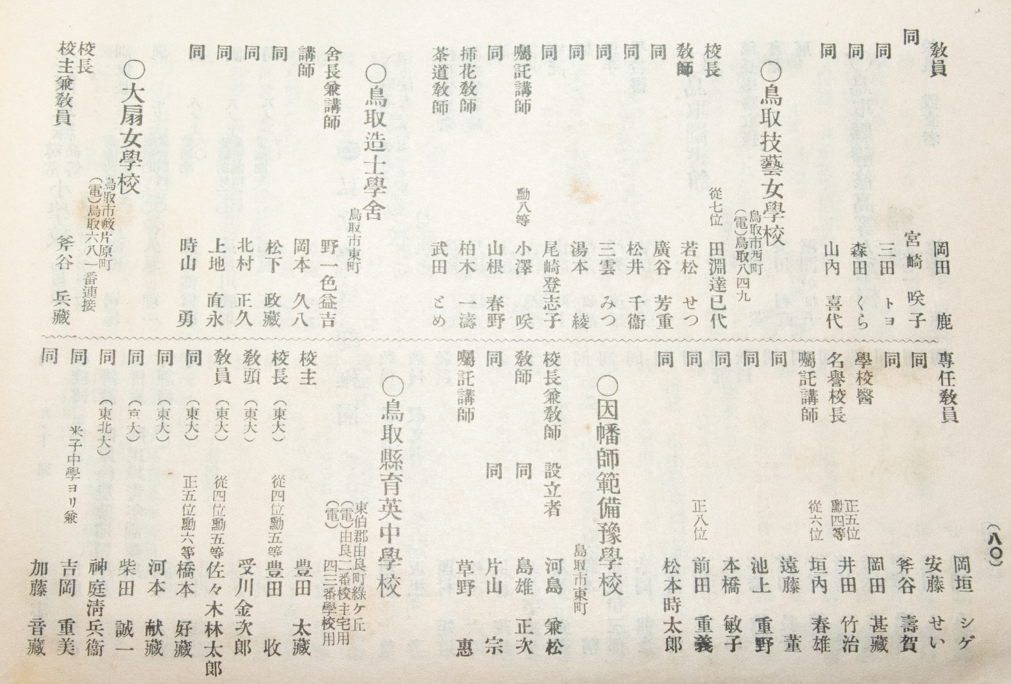 (八〇)
敎員 岡田 鹿
同 宮崎 咲子
同 三田 トヨ
同 森田 くら
同 山内 喜代
○鳥取技藝女學校
鳥取市西町
(電)鳥取八四九
校長 從七位 田淵達已代
敎師 若松 せつ
同 廣谷 芳重
同 松井 千衞
同 三雲 みつ
同 湯本 綾
同 尾崎登志子
囑託講師 勳八等 小澤 咲
同 山根 春野
揷花敎師 柏木 一濤
茶道敎師 武田 とめ
○鳥取造士學舍
鳥取市東町
舍長兼講師 野一色益吉
講師 岡本 久八
同 松下 政藏
同 北村 正久
同 上地 直永
同 時山 勇
○大扇女學校
鳥取市岐片原町
(電)鳥取六八一番連接
校長
校主兼敎員 斧谷 兵藏
專任敎員 岡垣 シゲ
同 安藤 せい
同 斧谷 壽賀
學校醫 岡田 甚藏
名譽校長 正五位勳四等 井田 竹治
囑託講師 從六位 垣內 春雄
同 遠藤 董
同 池上 重野
同 本橋 敏子
同 正八位 前田 重義
同 松本時太郎
○因幡師範備豫學校
鳥取市東町
校長兼敎師 設立者 河島 兼松
敎師 同 島雄 正次
同 同 片山 宗
囑託講師 草野 惠
○鳥取縣育英中學校
東伯郡由良町綠ケ丘
(電)由良二番校主宅用
(電) 四三番學校用
校主 豊田 太藏
校長 (東大) 從四位勳五等 豊田 收
敎頭 (東大) 受川金次郎
敎員 (東大) 從四位勳五等 佐々木林太郎
同 (東大) 正五位勳六等 橋本 好藏
同 (東大) 河本 献藏
同 (京大) 柴田 誠一
同 (東北大) 神庭淸兵衞
同 米子中學ヨリ兼 吉岡 重美
同 加藤 音藏